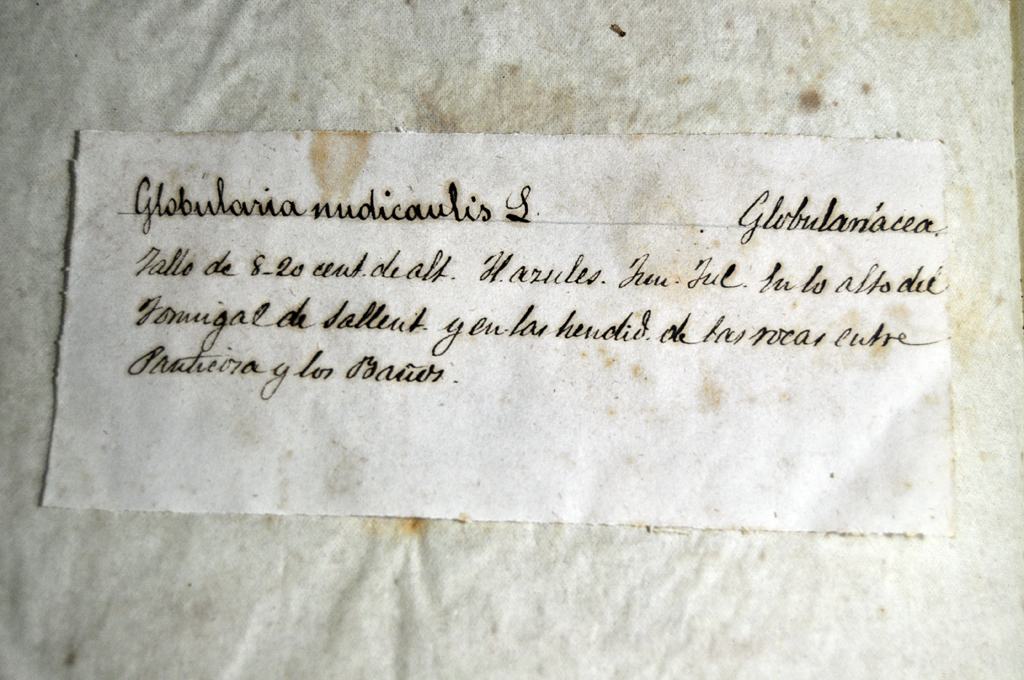 Globularia nudicaulis L. Globulariácea.
Tallo de 8-20 cent. de alt. Fl. azules. Jun. Jul. En lo alto del
Formigal de Sallent. y en las hendid. de las rocas entre
Panticosa y los Baños.